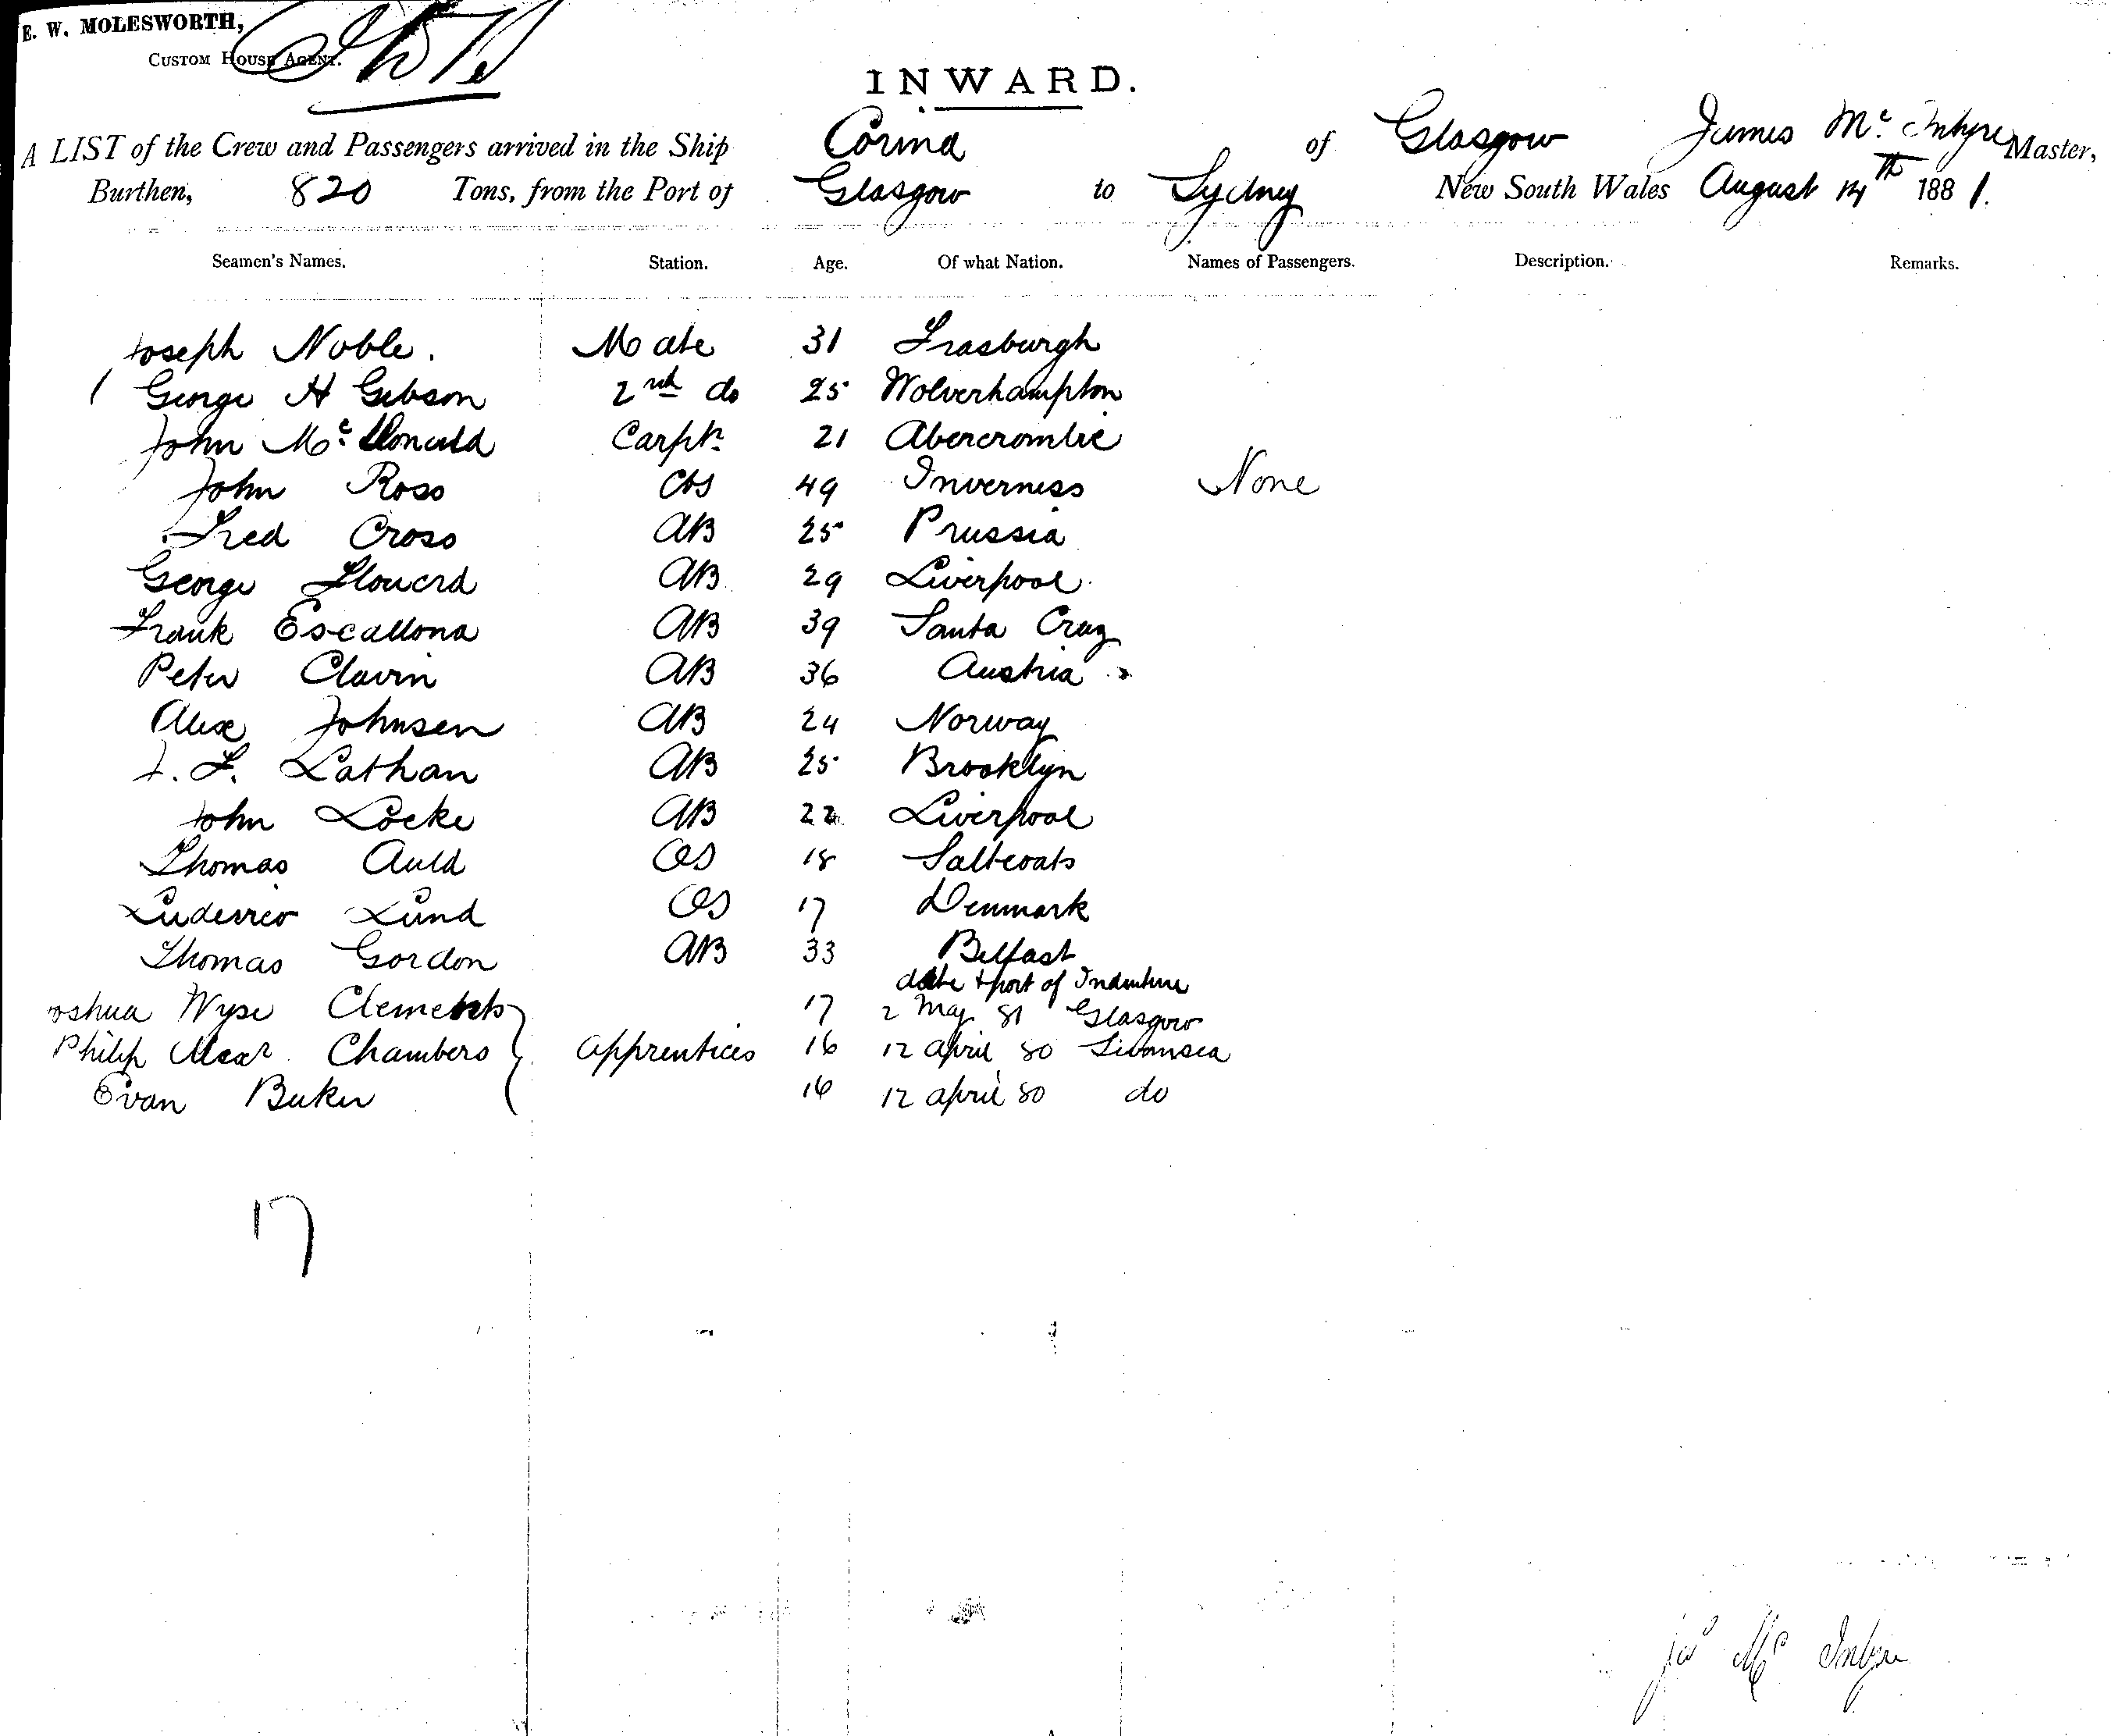 E. W. MOLESWORTH,
CUSTOM HOUSE AGENT.
INWARD.
A LIST of the Crew and Passengers arrived in the Ship Corina of Glasgow James Mc. Intyre Master,
Burthen, 820 Tons, from the Port of Glasgow to Sydney New South Wales August 14th 1881.
Seamen's Names. Station. Age. Of what Nation. Names of Passengers. Description. Remarks.
Joseph Noble. Mate 31 Frasburgh
George H Gibson 2nd do 25 Wolverhampton
John Mc. Donald Carptr. 21 Abercrombie
John Ross 49 Inverness None
Fred Cross AB 25 Prussia
George AB 29 Liverpool
Frank Escallona AB 39 Santa Cruz
Peter Clavin AB 36 Austria
Alex Johnsen AB 24 Norway
J. F. Lathan AB 25 Brooklyn
John Locke AB 22 Liverpool
Thomas Auld OS 18 Saltcoats
Lund OS 17 Denmark
Thomas Gordon AB 33 Belfast
date & port of Indenture
oshua Wyse Clements 17 2 May 81 Glasgow
Philip Alexr. Chambers Apprentices 16 12 April 80 Swansea
Evan Baker 16 12 April 80 do
17
Jas Mc Intyre